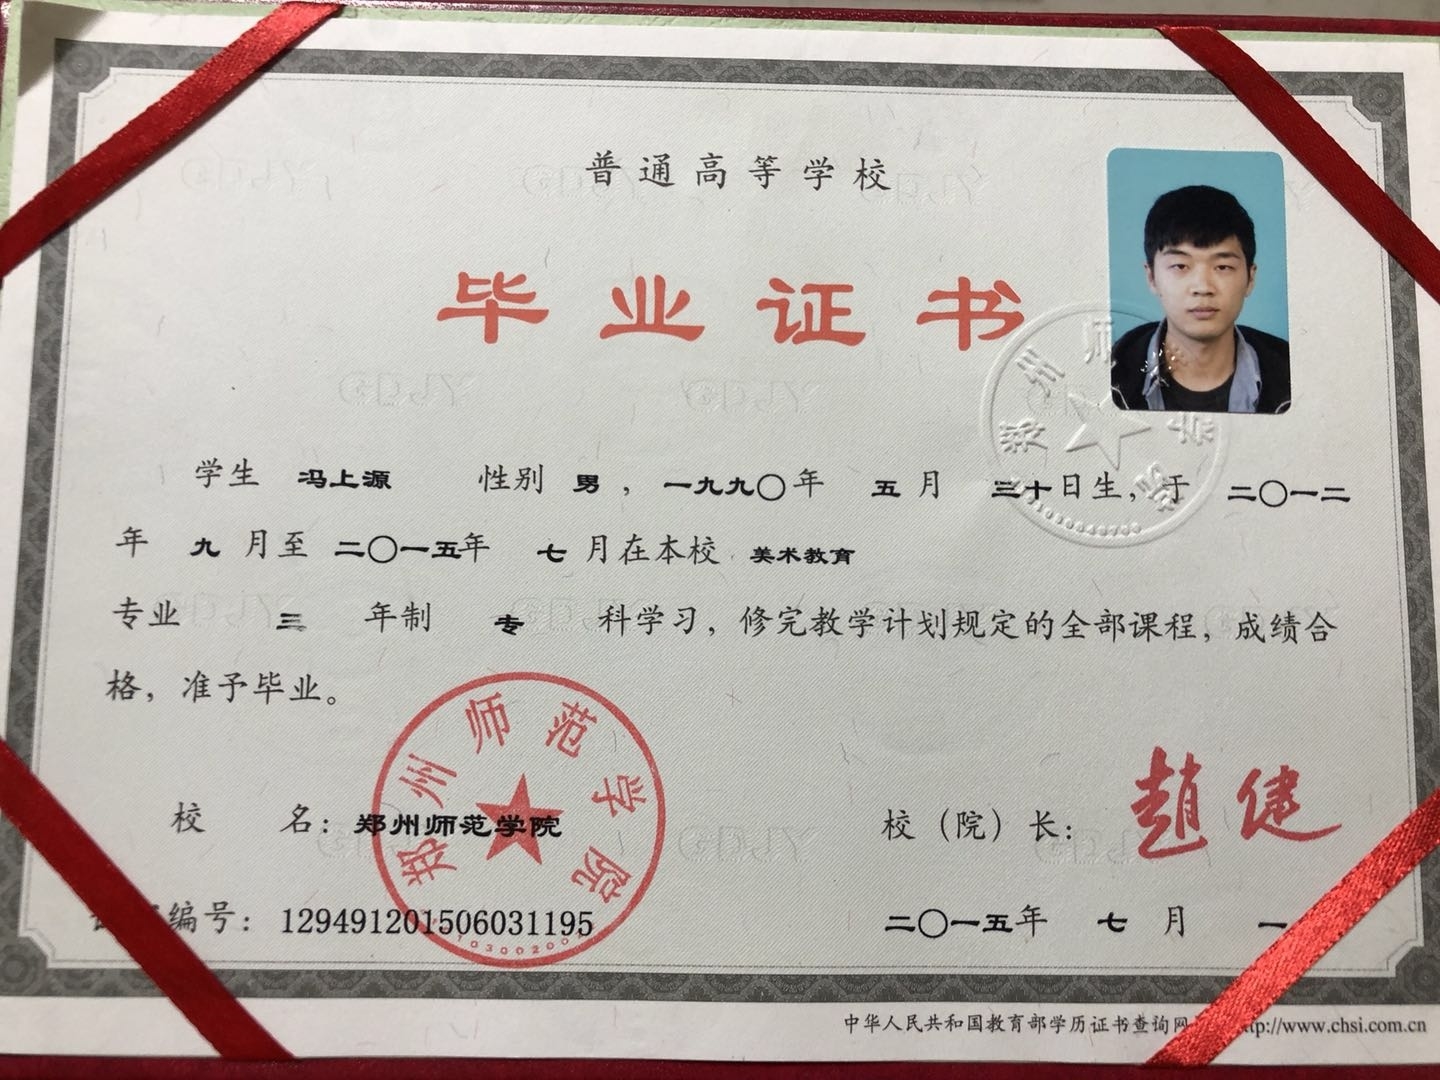 普通高等学校
毕业证书
学生 冯上源 性别 男，一九九〇年 五月 三十日生，于 二〇一二
年 九 月至 二〇一五年 七 月在本校 美术教育
专业 三 年制 专 科学习，修完教学计划规定的全部课程，成绩合
格，准予毕业。
郑州师范学院
校 名：郑州师范学院
校（院）长：赵健
编号：129491201506031195
二〇一五年 七 月 一
中华人民共和国教育部学历证书查询网 http://www.chsi.com.cn